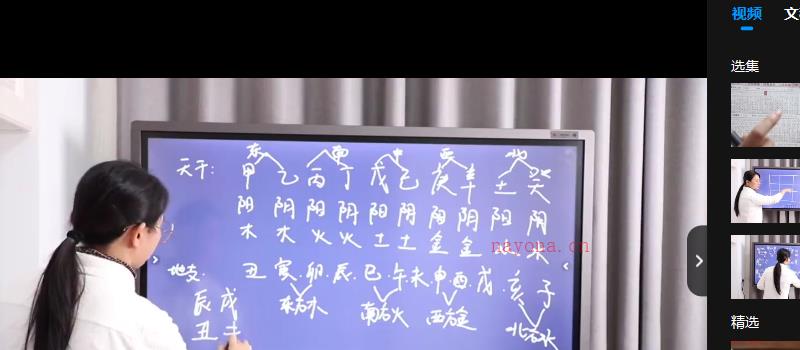 视频
选集
东 南 中 西 北
天干: 甲 乙 丙 丁 戊 己 庚 辛 壬 癸
阳 阴 阳 阴 阳 阴 阳 阴 阳 阴
木 木 火 火 土 土 金 金 水
nayona.cn
地支. 丑 寅.卯.辰.巳.午.未.申.酉.戌.亥 子
东方木 南方火 西方金 北方水
辰 戌
丑 土
精选